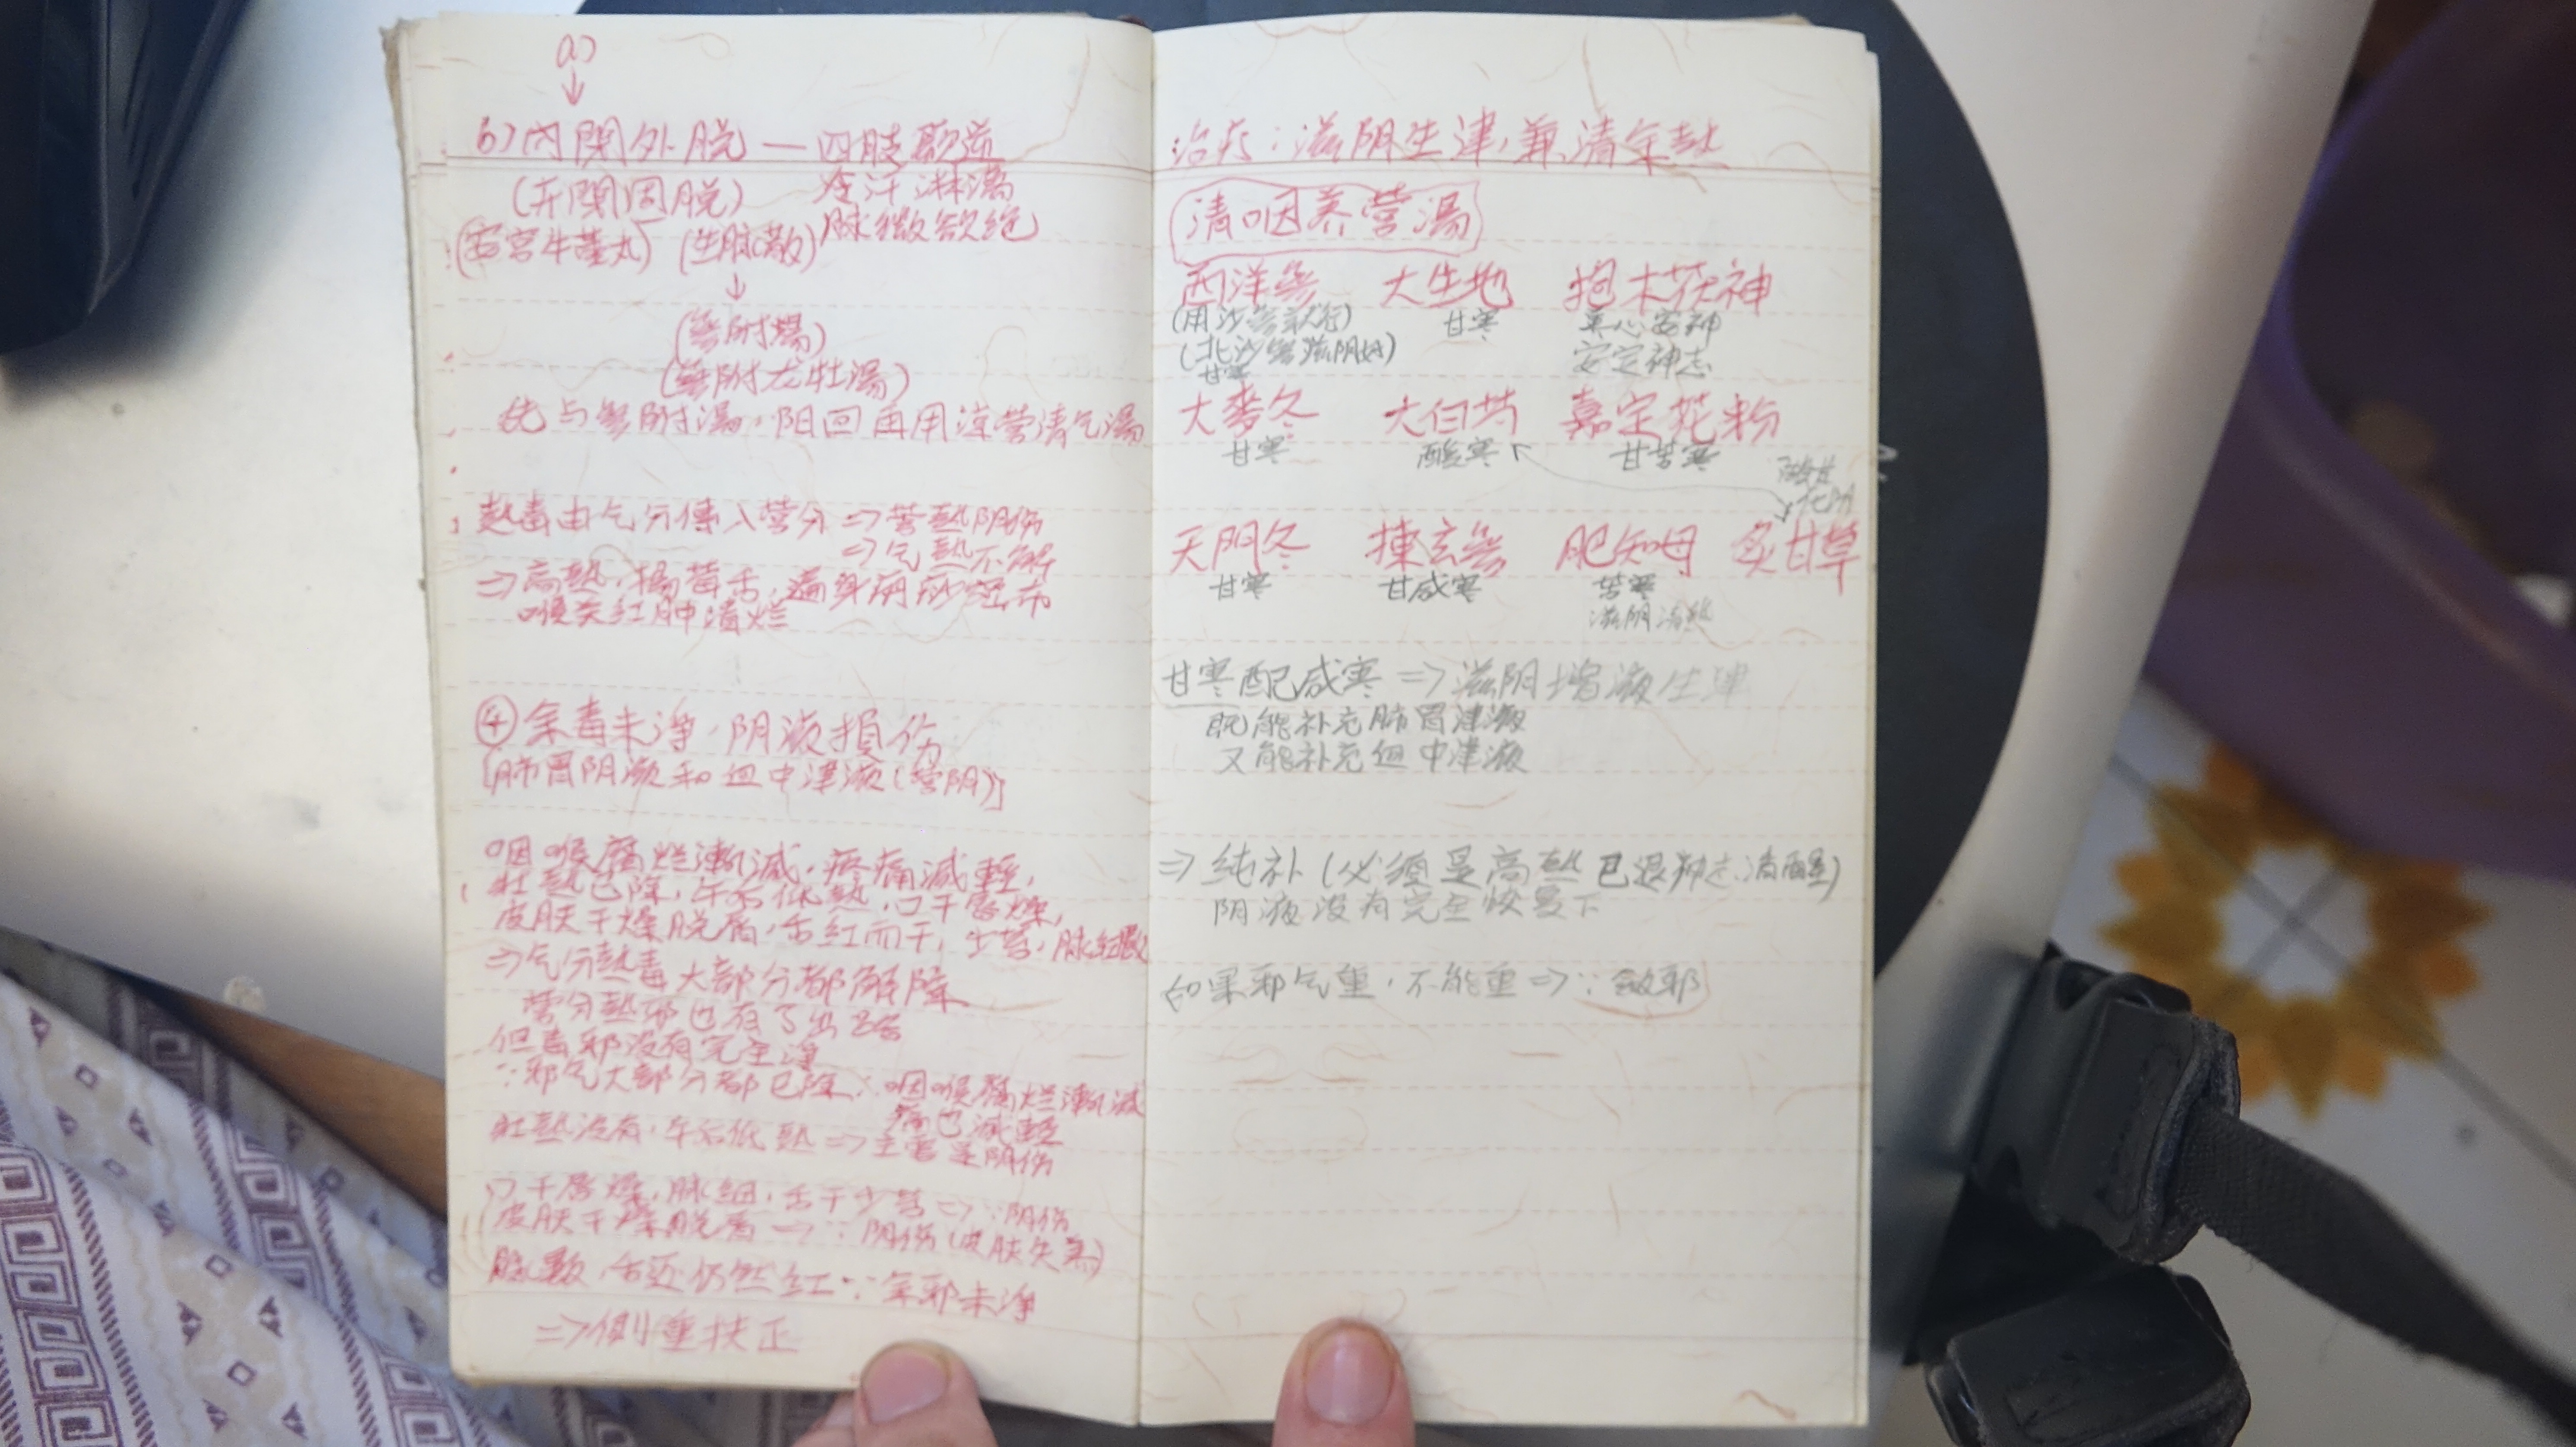 a)
↓
b) 内閉外脱 — 四肢厥逆
(开閉固脱) 冷汗淋漓
(安宫牛黄丸) (生脉散) 脉微欲绝
↓
(參附湯)
(參附龙牡湯)
先与參附湯,阳回再用凉营清气湯
热毒由气分傳入营分 ⇒ 营热阴伤
⇒ 气热不解
⇒ 高热,楊莓舌,遍身痧密布
喉关红肿溃烂
④ 余毒未净,阴液損伤
[肺胃阴液和血中津液(营阴)]
咽喉腐烂漸減,疼痛減輕,
壮热已除,午后低热,口干唇燥,
皮肤干燥脱屑,舌红而干,少苔,脉细數
⇒ 气分热毒大部分都解除
营分热邪也有了出路
但毒邪没有完全净
∵邪气大部分都已除∴咽喉腐烂漸減
痛也減輕
壮热没有,午后低热 ⇒ 主要是阴伤
口干唇燥,脉细,舌干少苔 ⇒ ∵阴伤
皮肤干燥脱屑 ⇒ ∵阴伤(皮肤失养)
脉數,舌还仍然红∵余邪未净
⇒ 側重扶正
治疗:滋阴生津,兼清余热
清咽养营湯
西洋參 大生地 抱木茯神
(用沙參就行) 甘寒 寧心安神
(北沙參滋阴好) 安定神志
甘寒
大麥冬 大白芍 嘉定花粉
甘寒 酸寒 甘苦寒
酸甘
化阴
天門冬 揀玄參 肥知母 炙甘草
甘寒 甘咸寒 苦寒
滋阴清热
甘寒配咸寒 ⇒ 滋阴增液生津
既能补充肺胃津液
又能补充血中津液
⇒ 纯补(必須是高热已退神志清醒)
阴液没有完全恢复下
如果邪气重,不能重 ⇒ ∵敛邪